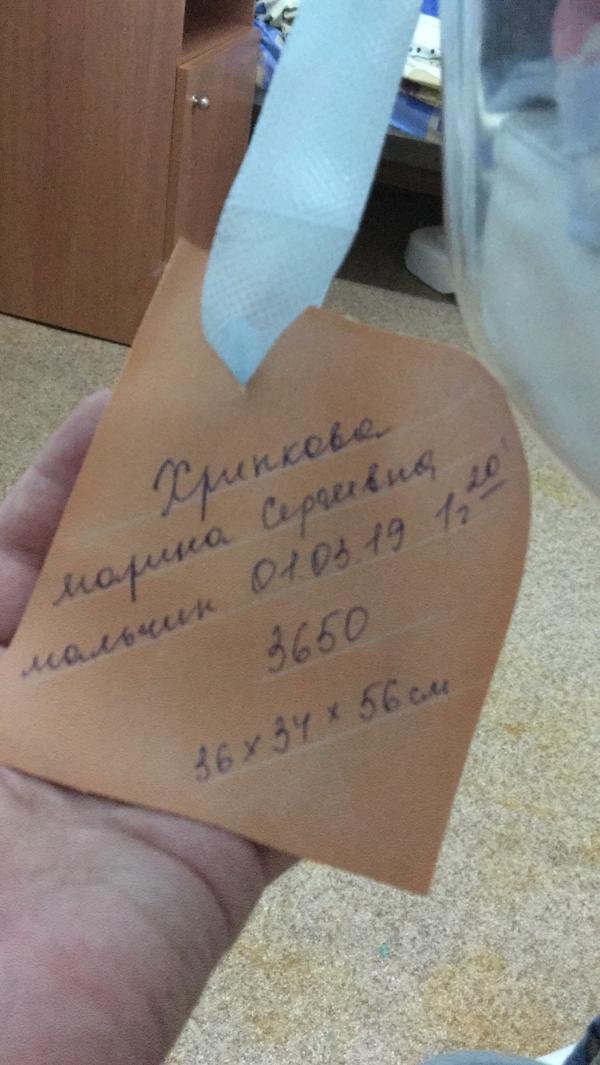 Хрипкова
Марина Сергеевна
мальчик 01.03.19 12²⁰'
3650
36 x 34 x 56 см